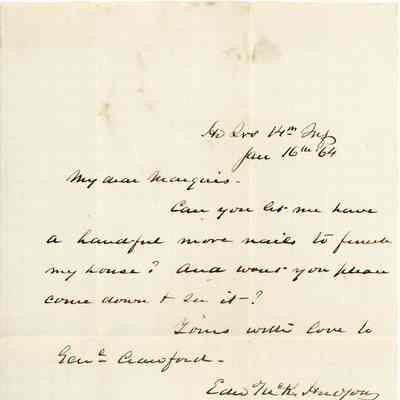 Hd Qrs 14th Inf
Jan 16th 64
My dear Marquis -
Can you let me have
a handful more nails to finish
my house? And wont you please
come down & see it - ?
Yours with love to
Genl Crawford -
Edw McK. Hudson